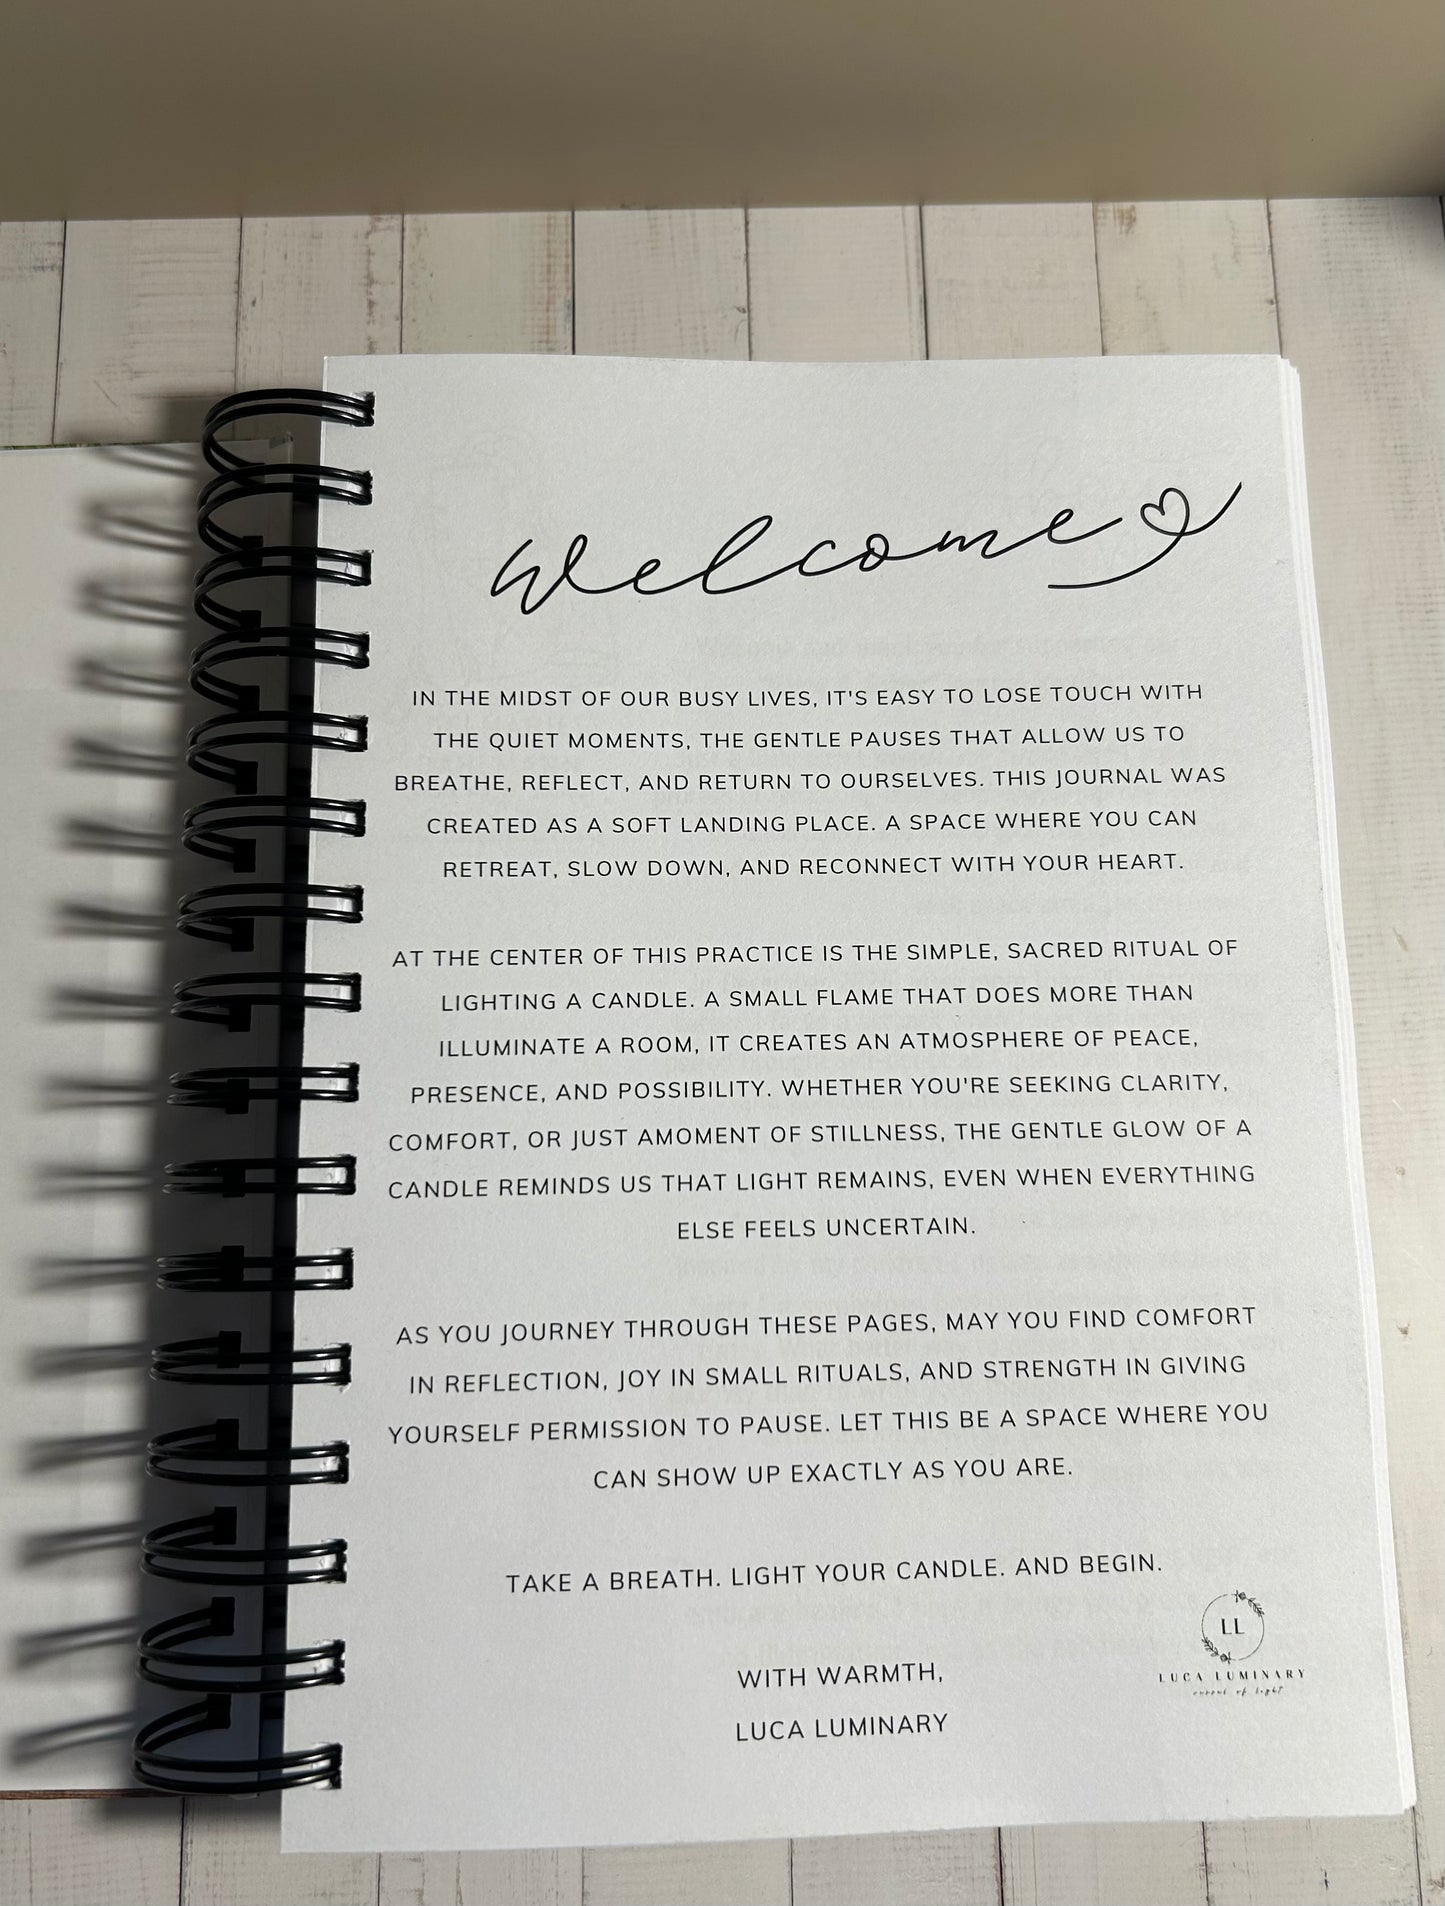 welcome
IN THE MIDST OF OUR BUSY LIVES, IT'S EASY TO LOSE TOUCH WITH
THE QUIET MOMENTS, THE GENTLE PAUSES THAT ALLOW US TO
BREATHE, REFLECT, AND RETURN TO OURSELVES. THIS JOURNAL WAS
CREATED AS A SOFT LANDING PLACE. A SPACE WHERE YOU CAN
RETREAT, SLOW DOWN, AND RECONNECT WITH YOUR HEART.
AT THE CENTER OF THIS PRACTICE IS THE SIMPLE, SACRED RITUAL OF
LIGHTING A CANDLE. A SMALL FLAME THAT DOES MORE THAN
ILLUMINATE A ROOM, IT CREATES AN ATMOSPHERE OF PEACE,
PRESENCE, AND POSSIBILITY. WHETHER YOU'RE SEEKING CLARITY,
COMFORT, OR JUST AMOMENT OF STILLNESS, THE GENTLE GLOW OF A
CANDLE REMINDS US THAT LIGHT REMAINS, EVEN WHEN EVERYTHING
ELSE FEELS UNCERTAIN.
AS YOU JOURNEY THROUGH THESE PAGES, MAY YOU FIND COMFORT
IN REFLECTION, JOY IN SMALL RITUALS, AND STRENGTH IN GIVING
YOURSELF PERMISSION TO PAUSE. LET THIS BE A SPACE WHERE YOU
CAN SHOW UP EXACTLY AS YOU ARE.
TAKE A BREATH. LIGHT YOUR CANDLE. AND BEGIN.
WITH WARMTH,
LUCA LUMINARY
LL
LUCA LUMINARY
of light